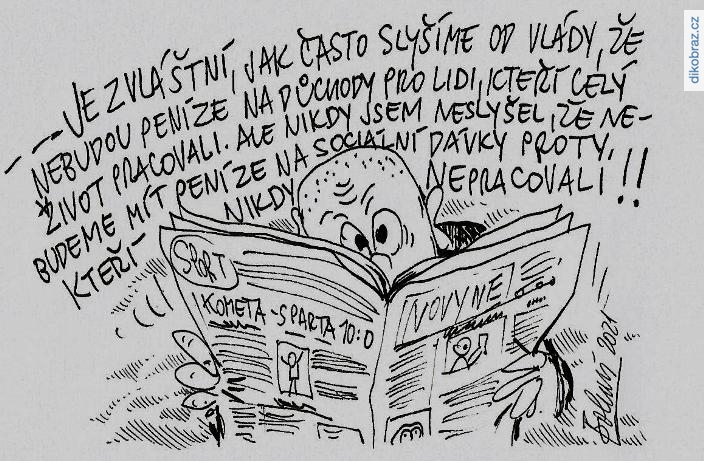 ---JE ZVLÁŠTNÍ, JAK ČASTO SLYŠÍME OD VLÁDY, ŽE
NEBUDOU PENÍZE NA DŮCHODY PRO LIDI, KTEŘÍ CELÝ
ŽIVOT PRACOVALI. ALE NIKDY JSEM NESLYŠEL, ŽE NE-
BUDEME MÍT PENÍZE NA SOCIÁLNÍ DÁVKY PRO TY,
KTEŘÍ NIKDY NEPRACOVALI!!
SPORT
KOMETA-SPARTA 10:0
NOVYNE
2021
dikobraz.cz